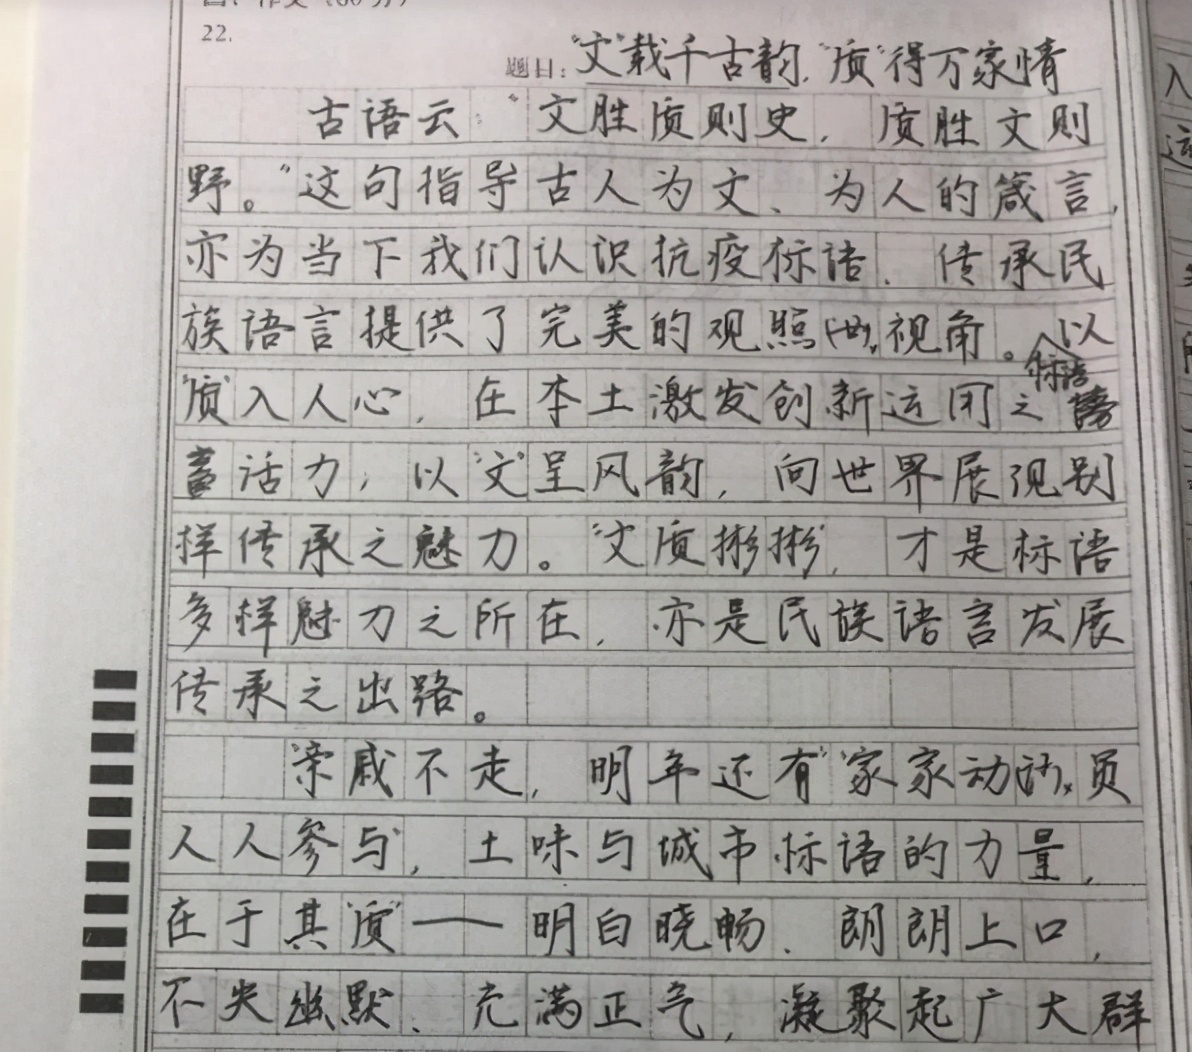 22.
题目：“文”载千古韵，“质”得万家情
古语云：“文胜质则史，质胜文则
野。”这句指导古人为文、为人的箴言，
亦为当下我们认识抗疫标语、传承民
族语言提供了完美的观照视角。以
“质”入人心，在本土激发创新运用之标语
蓄活力，以“文”呈风韵，向世界展现别
样传承之魅力。“文质彬彬”，才是标语
多样魅力之所在，亦是民族语言发展
传承之出路。
“亲戚不走，明年还有”“家家动员
人人参与”，土味与城市标语的力量，
在于其“质”——明白晓畅、朗朗上口，
不失幽默、充满正气，凝聚起广大群